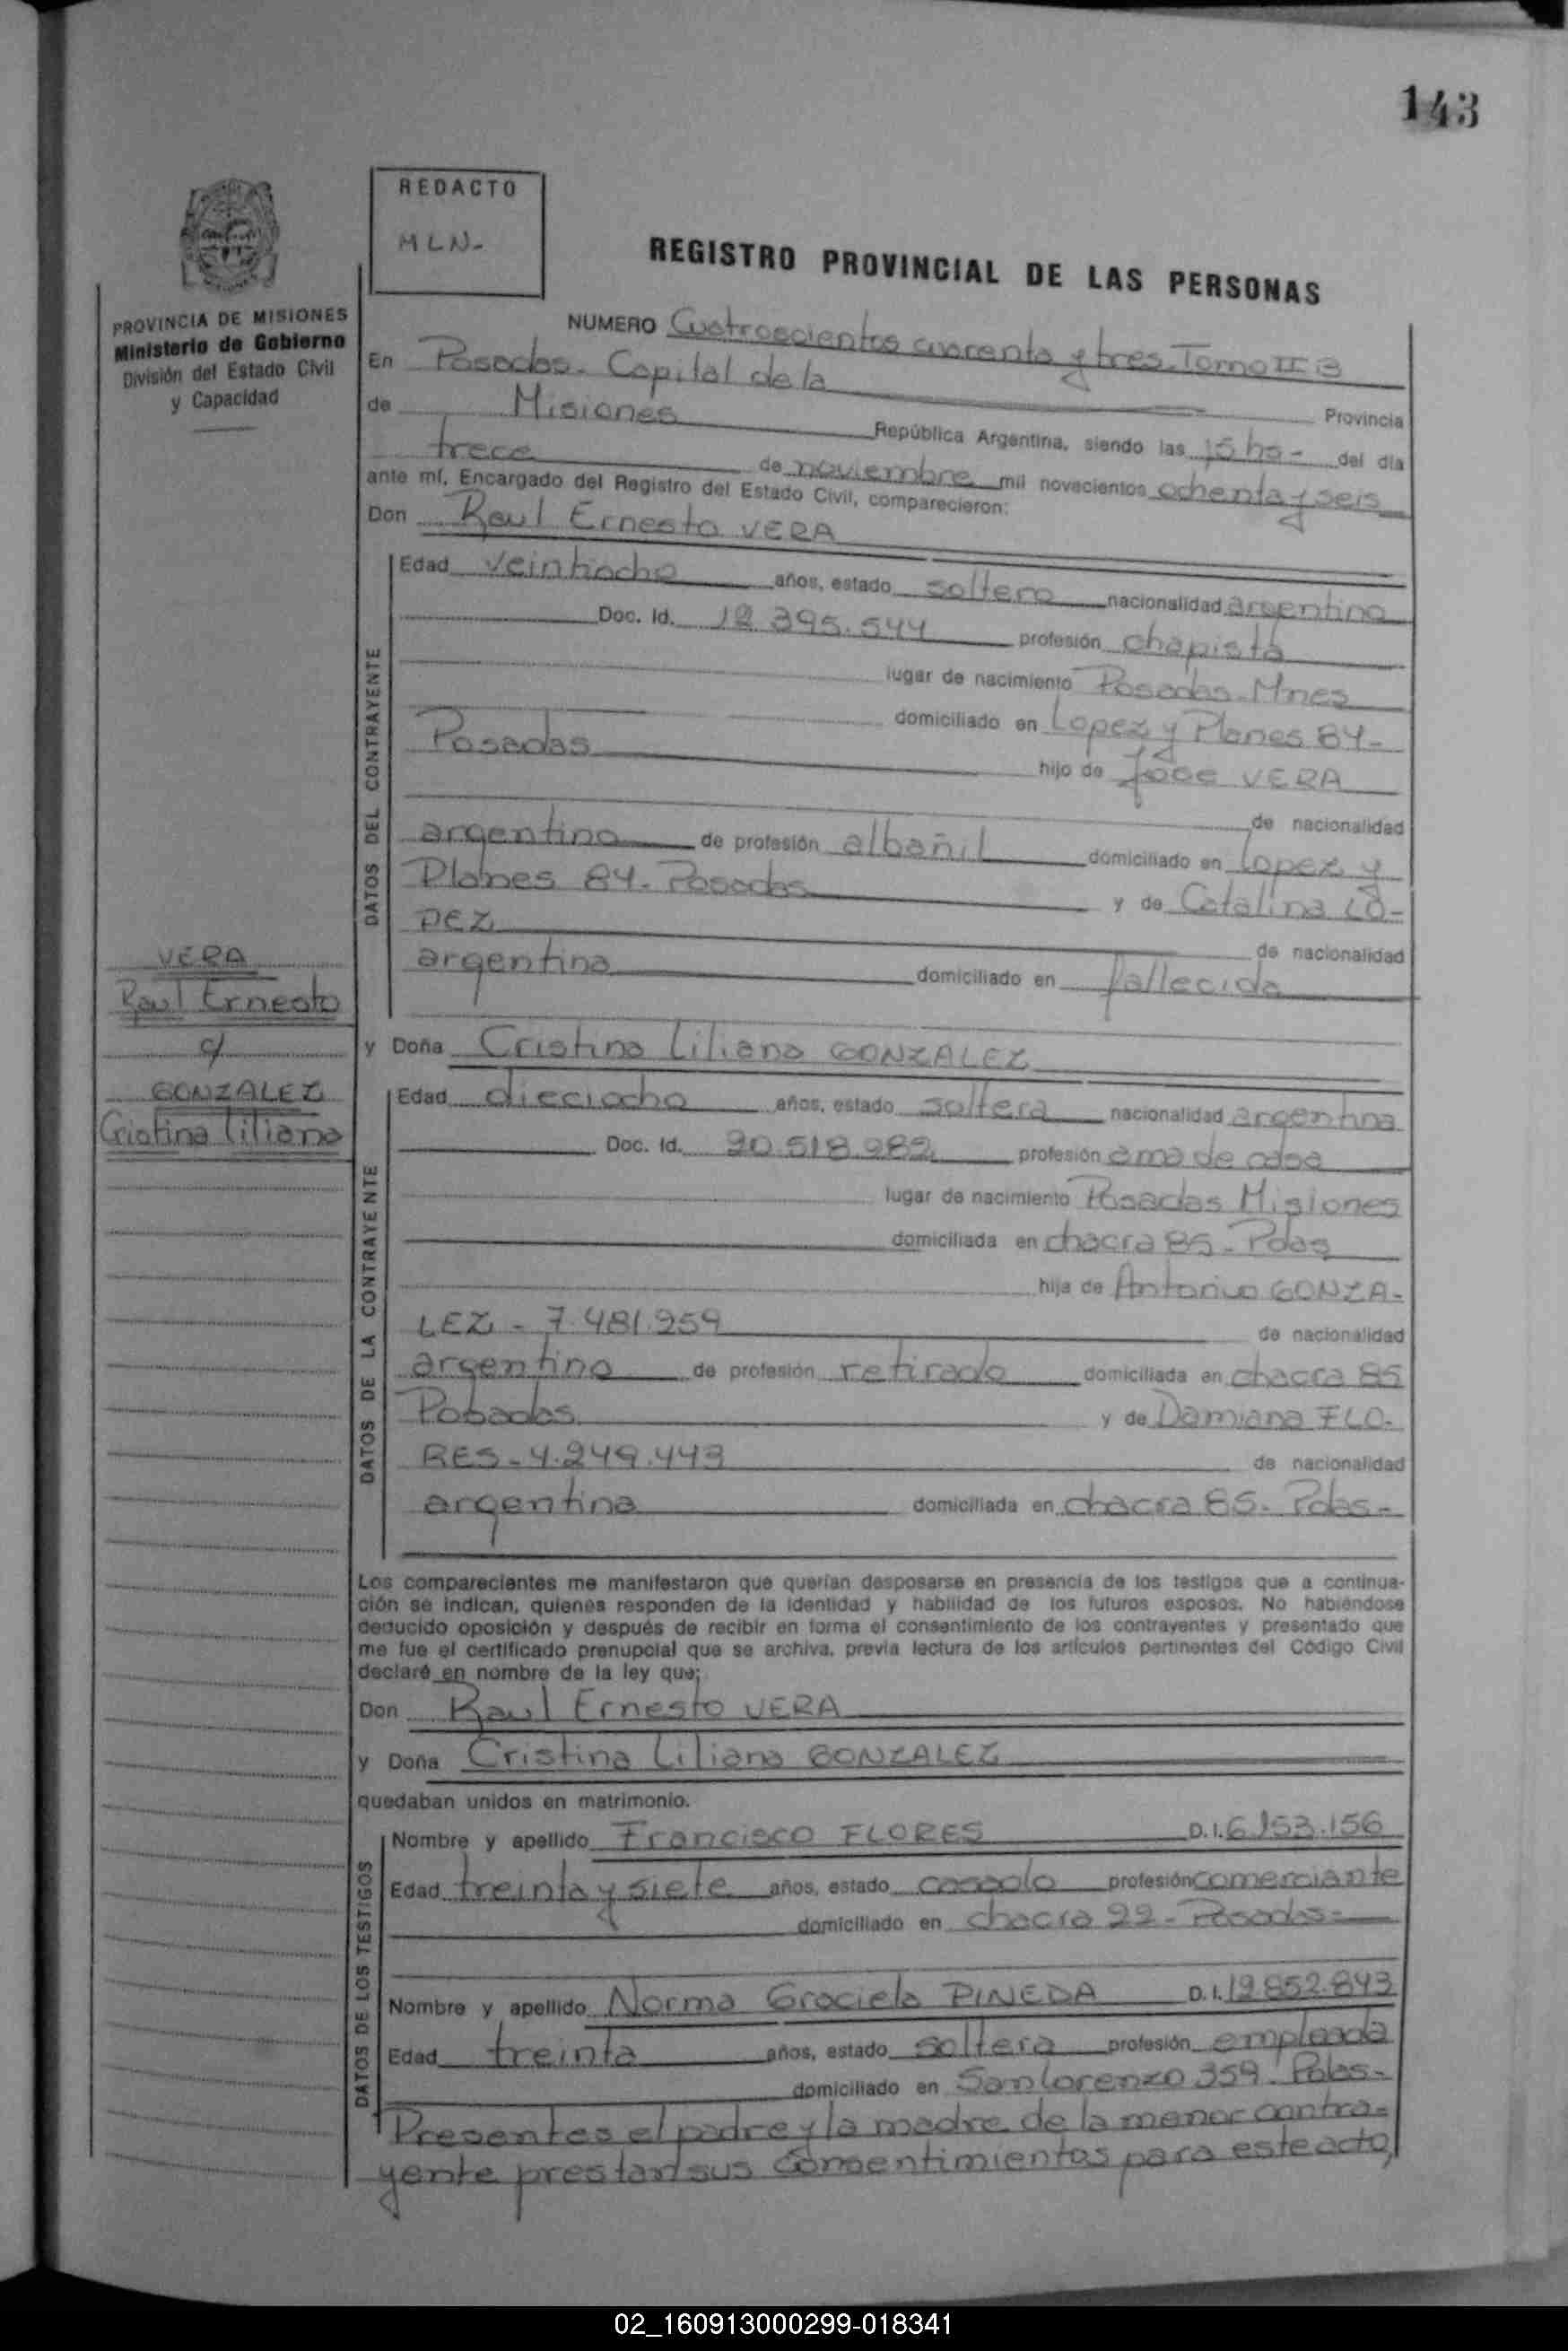 143
REDACTO
MLN-
REGISTRO PROVINCIAL DE LAS PERSONAS
PROVINCIA DE MISIONES
Ministerio de Gobierno
División del Estado Civil
y Capacidad
NUMERO Cuatroscientos cuarenta y tres. Tomo II B
En Posadas. Capital de la Provincia
de Misiones República Argentina, siendo las 15 hs- del día
trece de noviembre mil novecientos ochenta y seis
ante mí, Encargado del Registro del Estado Civil, comparecieron:
Don Raul Ernesto VERA
DATOS DEL CONTRAYENTE
Edad veintiocho años, estado soltero nacionalidad argentino
Doc. Id. 12.395.544 profesión chapista
lugar de nacimiento Posadas-Mnes
domiciliado en Lopez y Planes 84-
Posadas hijo de Jose VERA
de nacionalidad
argentino de profesión albañil domiciliado en Lopez y
Planes 84. Posadas y de Catalina LO-
PEZ de nacionalidad
argentina domiciliado en fallecida
VERA
Raul Ernesto
c/
GONZALEZ
Cristina Liliana
y Doña Cristina Liliana GONZALEZ
DATOS DE LA CONTRAYENTE
Edad dieciocho años, estado soltera nacionalidad argentina
Doc. Id. 20.518.982 profesión ama de casa
lugar de nacimiento Posadas Misiones
domiciliada en chacra 85- Pdas
hija de Antonio GONZA-
LEZ - 7.481.959 de nacionalidad
argentino de profesión retirado domiciliada en chacra 85
Posadas y de Damiana FLO-
RES - 4.249.443 de nacionalidad
argentina domiciliada en chacra 85- Pdas-
Los comparecientes me manifestaron que querían desposarse en presencia de los testigos que a continua-
ción se indican, quienes responden de la identidad y habilidad de los futuros esposos. No habiéndose
deducido oposición y después de recibir en forma el consentimiento de los contrayentes y presentado que
me fue el certificado prenupcial que se archiva, previa lectura de los artículos pertinentes del Código Civil
declaré en nombre de la ley que:
Don Raul Ernesto VERA
y Doña Cristina Liliana GONZALEZ
quedaban unidos en matrimonio.
DATOS DE LOS TESTIGOS
Nombre y apellido Francisco FLORES D.I. 6.153.156
Edad treinta y siete años, estado casado profesión comerciante
domiciliado en chacra 22- Posadas-
Nombre y apellido Norma Graciela PINEDA D.I. 12.852.843
Edad treinta años, estado soltera profesión empleada
domiciliado en San Lorenzo 359. Pdas-
Presentes el padre y la madre de la menor contra-
yente prestan sus consentimientos para este acto,
02_160913000299-018341